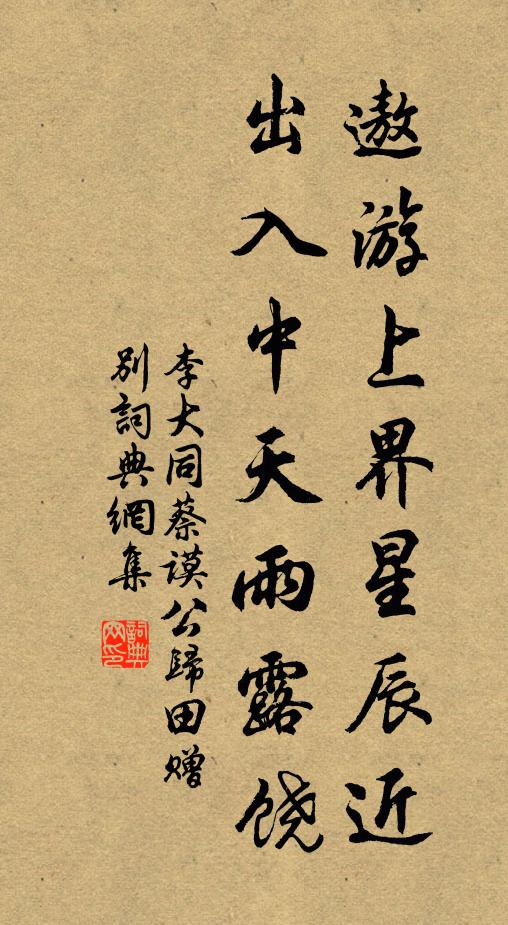 遨游上界星辰近
出入中天雨露饶
李大同蔡谟公歸田赠
别詞典網集
詞典網印